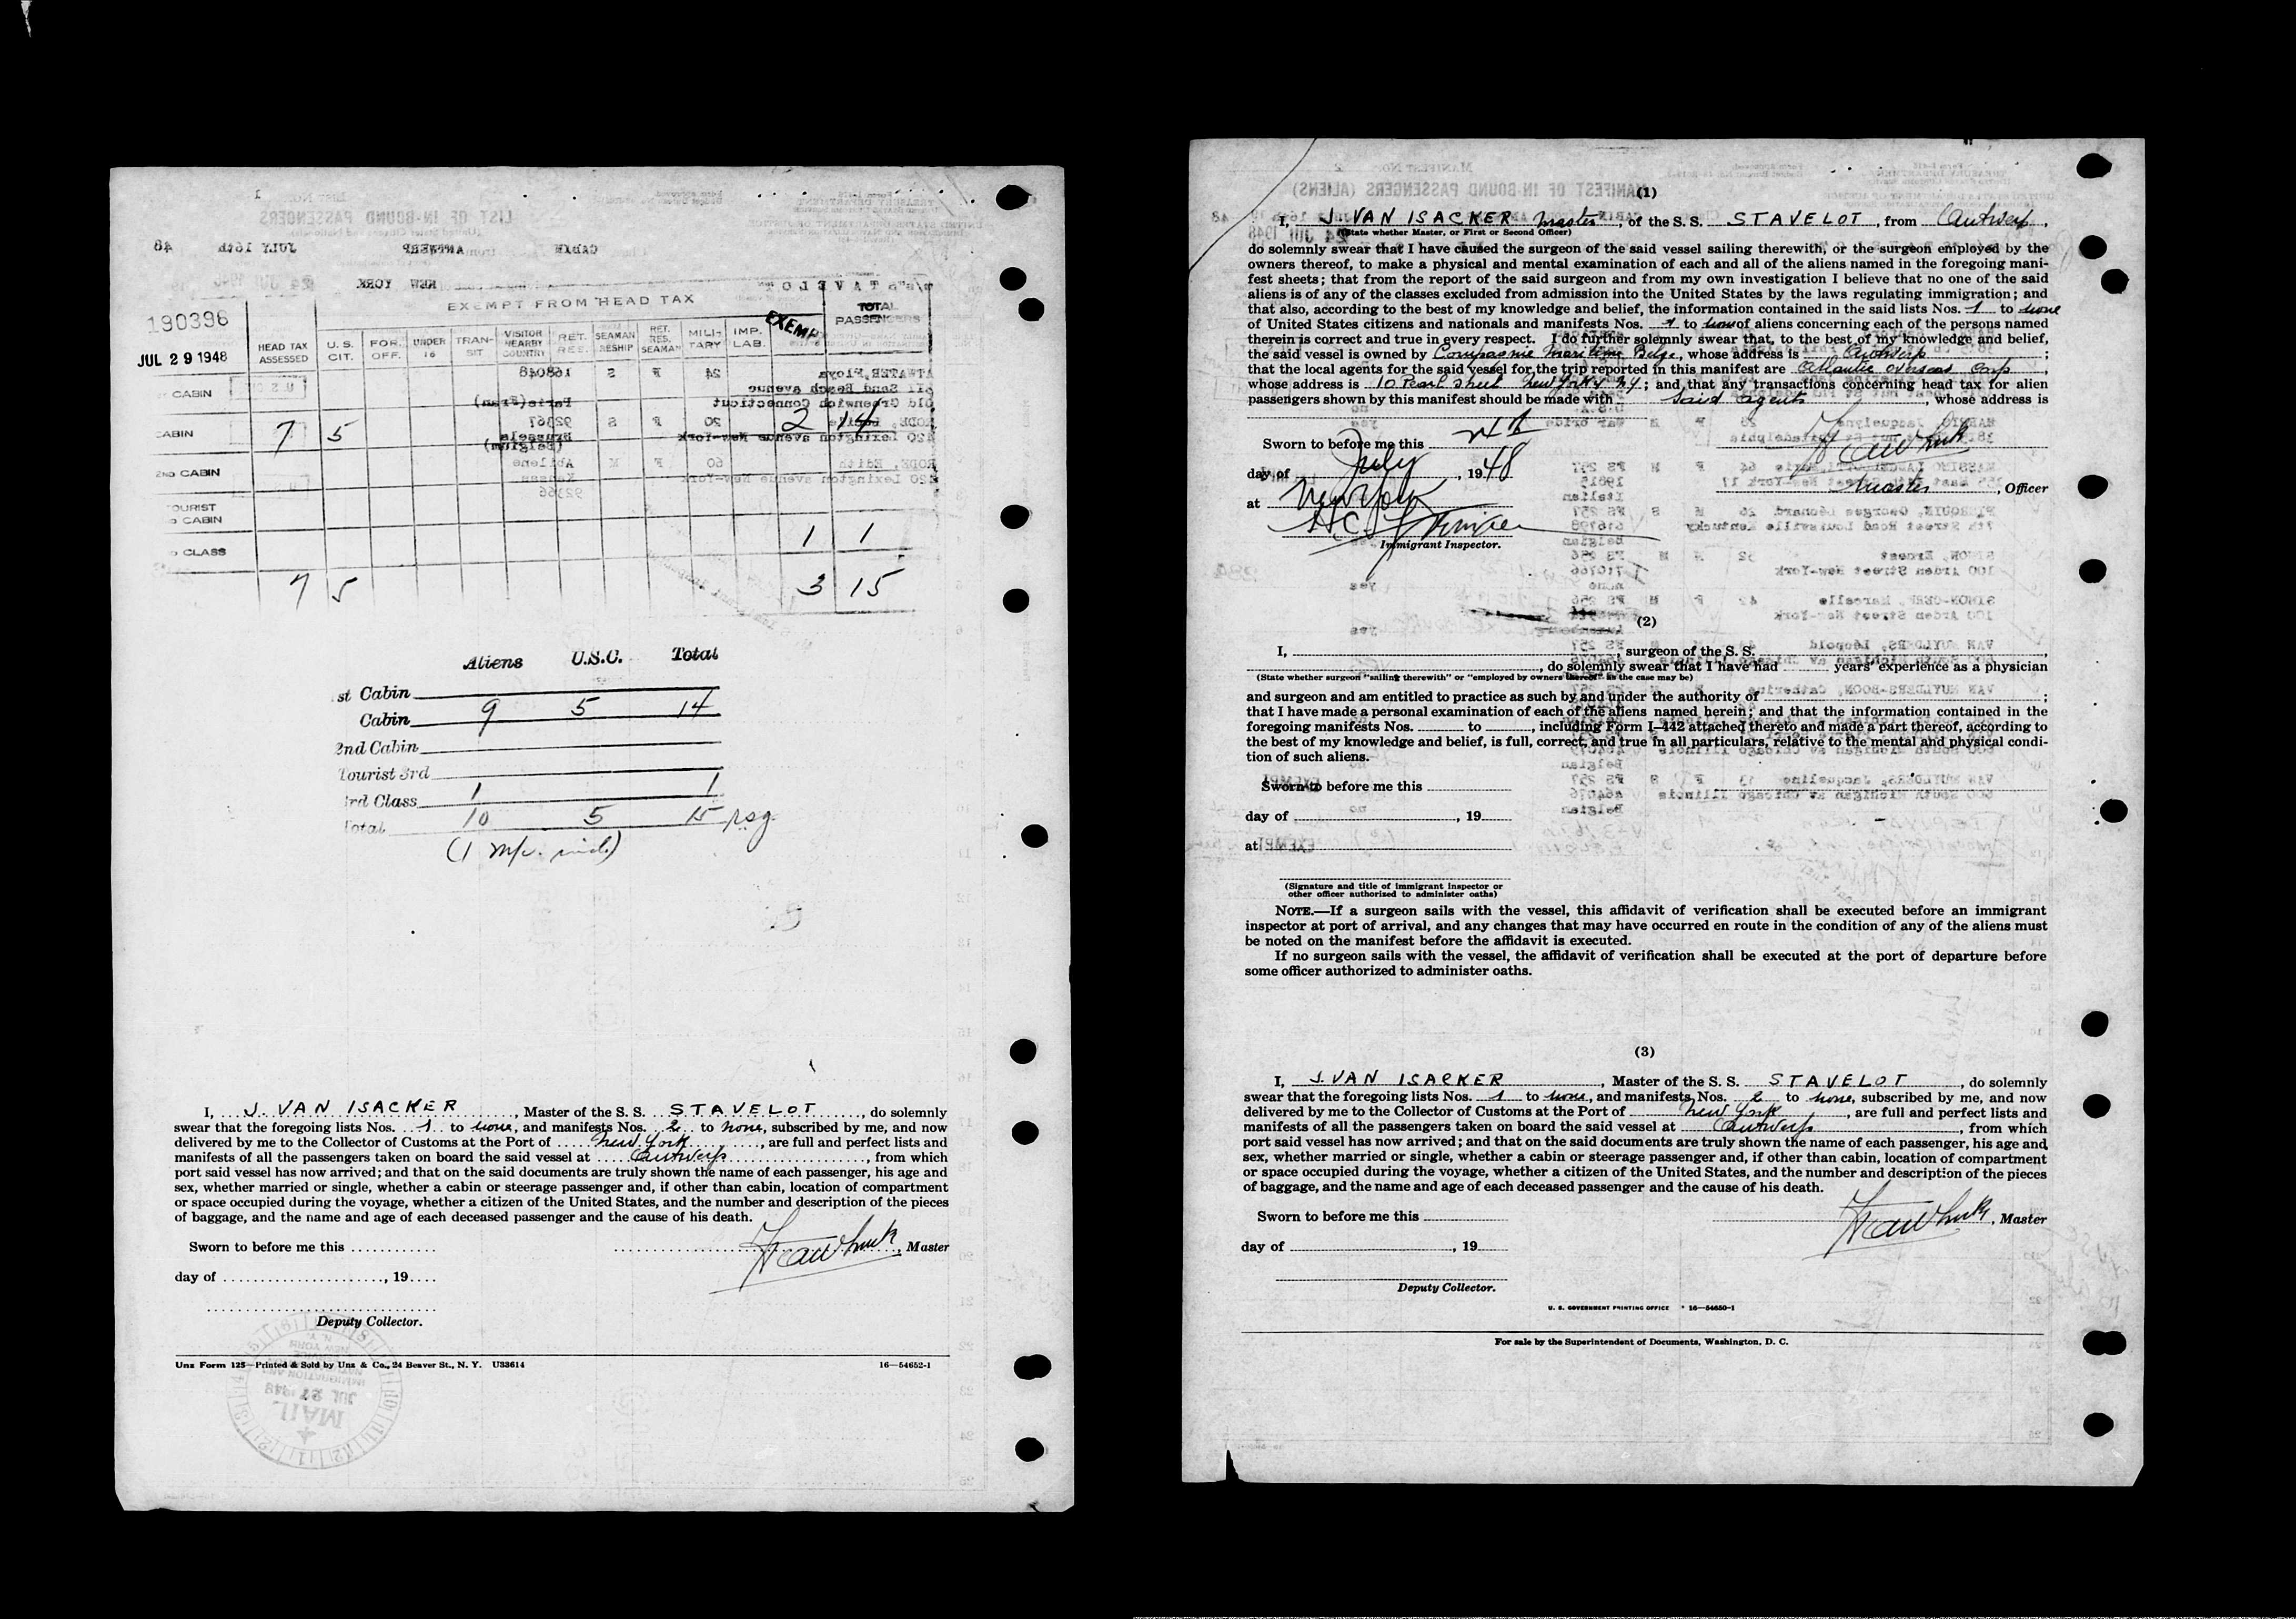 190396
JUL 29 1948
EXEMPT FROM HEAD TAX
HEAD TAX ASSESSED
U. S. CIT.
FOR. OFF.
UNDER 16
TRAN- SIT
VISITOR NEARBY COUNTRY
RET. RES.
SEAMAN RESHIP
RET. RES. SEAMAN
MILI- TARY
IMP. LAB.
EXEMP
TOTAL PASSENGERS
CABIN
CABIN 7 5 2 14
2ND CABIN
TOURIST
CABIN 1 1
CLASS
7 5 3 15
Aliens U.S.C. Total
st Cabin
Cabin 9 5 14
2nd Cabin
Tourist 3rd
3rd Class 1 1
Total 10 5 15 psg.
I, J. VAN ISACKER, Master of the S. S. STAVELOT, do solemnly
swear that the foregoing lists Nos. 1 to none, and manifests Nos. 2 to none, subscribed by me, and now
delivered by me to the Collector of Customs at the Port of New York, are full and perfect lists and
manifests of all the passengers taken on board the said vessel at Antwerp, from which
port said vessel has now arrived; and that on the said documents are truly shown the name of each passenger, his age and
sex, whether married or single, whether a cabin or steerage passenger and, if other than cabin, location of compartment
or space occupied during the voyage, whether a citizen of the United States, and the number and description of the pieces
of baggage, and the name and age of each deceased passenger and the cause of his death.
Sworn to before me this
, Master
day of , 19
Deputy Collector.
Unz Form 125—Printed & Sold by Unz & Co., 24 Beaver St., N. Y. U33614 16—54652-1
(1)
I, J. VAN ISACKER master, of the S. S. STAVELOT, from Antwerp,
(State whether Master, or First or Second Officer)
do solemnly swear that I have caused the surgeon of the said vessel sailing therewith, or the surgeon employed by the
owners thereof, to make a physical and mental examination of each and all of the aliens named in the foregoing mani-
fest sheets; that from the report of the said surgeon and from my own investigation I believe that no one of the said
aliens is of any of the classes excluded from admission into the United States by the laws regulating immigration; and
that also, according to the best of my knowledge and belief, the information contained in the said lists Nos. 1 to none
of United States citizens and nationals and manifests Nos. 1 to none of aliens concerning each of the persons named
therein is correct and true in every respect. I do further solemnly swear that, to the best of my knowledge and belief,
the said vessel is owned by Compagnie Maritime Belge, whose address is Antwerp;
that the local agents for the said vessel for the trip reported in this manifest are Atlantic overseas Corp,
whose address is 10 Pearl Street New York NY; and that any transactions concerning head tax for alien
passengers shown by this manifest should be made with said agents, whose address is
Sworn to before me this
day of July, 1948
master, Officer
at New York
Immigrant Inspector.
(2)
I, , surgeon of the S. S. ,
, do solemnly swear that I have had years' experience as a physician
(State whether surgeon "sailing therewith" or "employed by owners thereof" as the case may be)
and surgeon and am entitled to practice as such by and under the authority of ;
that I have made a personal examination of each of the aliens named herein; and that the information contained in the
foregoing manifests Nos. to , including Form I-442 attached thereto and made a part thereof, according to
the best of my knowledge and belief, is full, correct, and true in all particulars, relative to the mental and physical condi-
tion of such aliens.
Sworn to before me this
day of , 19
at
(Signature and title of immigrant inspector or
other officer authorized to administer oaths)
NOTE.—If a surgeon sails with the vessel, this affidavit of verification shall be executed before an immigrant
inspector at port of arrival, and any changes that may have occurred en route in the condition of any of the aliens must
be noted on the manifest before the affidavit is executed.
If no surgeon sails with the vessel, the affidavit of verification shall be executed at the port of departure before
some officer authorized to administer oaths.
(3)
I, J. VAN ISACKER, Master of the S. S. STAVELOT, do solemnly
swear that the foregoing lists Nos. 1 to none, and manifests Nos. 2 to none, subscribed by me, and now
delivered by me to the Collector of Customs at the Port of New York, are full and perfect lists and
manifests of all the passengers taken on board the said vessel at Antwerp, from which
port said vessel has now arrived; and that on the said documents are truly shown the name of each passenger, his age and
sex, whether married or single, whether a cabin or steerage passenger and, if other than cabin, location of compartment
or space occupied during the voyage, whether a citizen of the United States, and the number and description of the pieces
of baggage, and the name and age of each deceased passenger and the cause of his death.
Sworn to before me this
, Master
day of , 19
Deputy Collector.
U. S. GOVERNMENT PRINTING OFFICE 16—54650-1
For sale by the Superintendent of Documents, Washington, D. C.